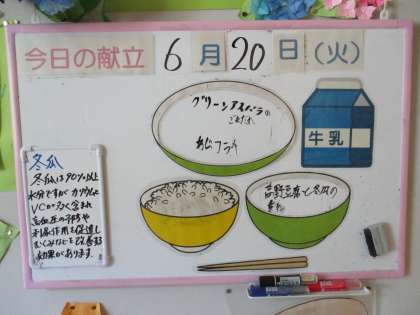 今日の献立 6月20日(火)
グリーンアスパラの
ごまあえ
あじフライ
牛乳
高野豆腐と冬瓜の
煮物
冬瓜
冬瓜は90%以上
水分ですが カリウムや
VCが多く含まれ
高血圧の予防や
利尿作用を促進し
むくみなどを改善する
効果があります。